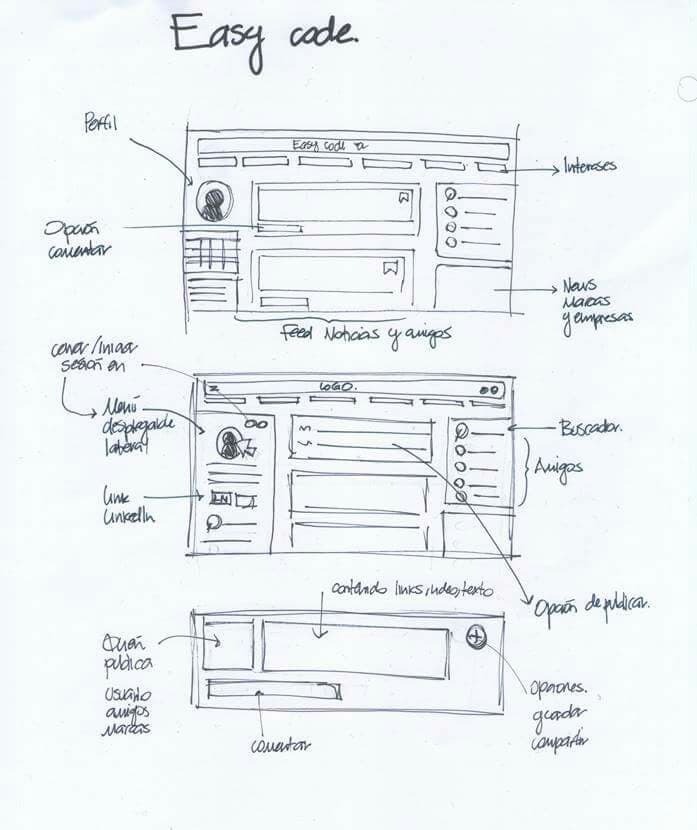 Easy code.
Perfil
Easy code
Intereses
Opción
comentar
News
Marcas
y empresas
Feed Noticias y amigos
cerrar/iniciar
sesión en
LOGO.
Menú
desplegable
lateral
Buscador.
Amigos
Link
LinkedIn
LN
Opción de publicar.
contenido links, video, texto
Quién
publica
Usuario
amigos
Marcas
comentar
Opciones.
guardar
compartir